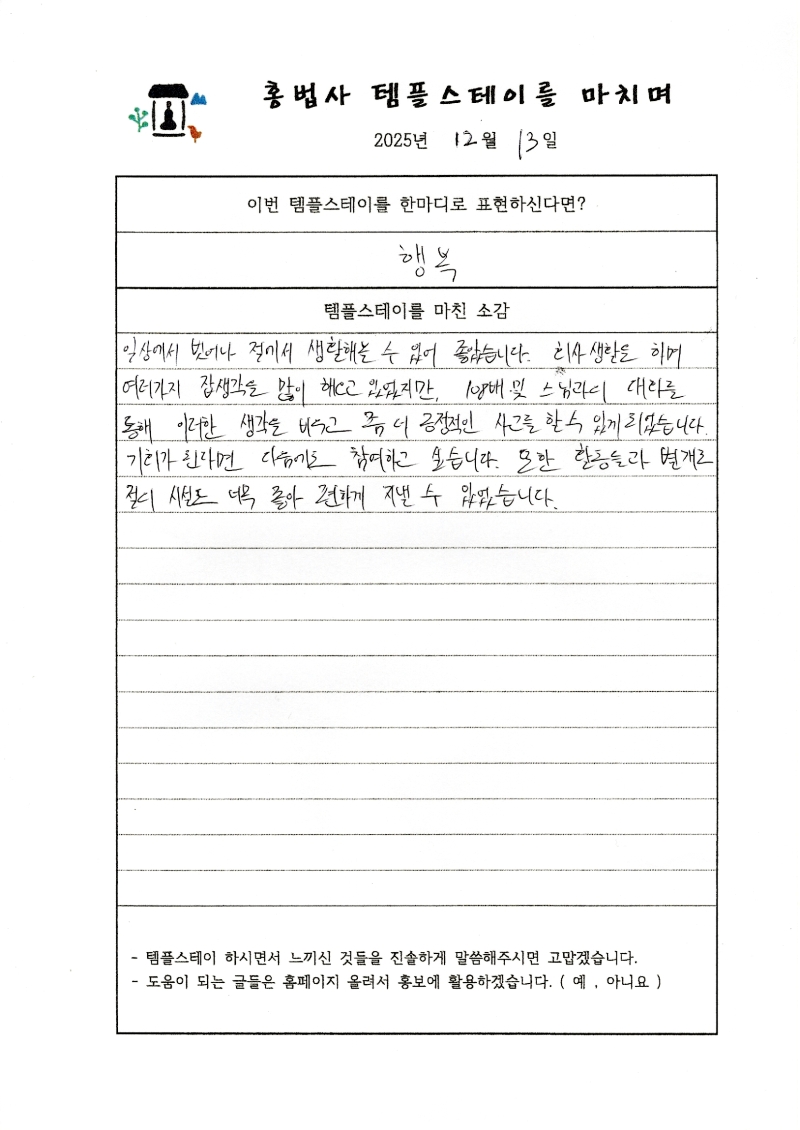 홍법사 템플스테이를 마치며
2025년 12월 13일
이번 템플스테이를 한마디로 표현하신다면?
행복
템플스테이를 마친 소감
일상에서 벗어나 절에서 생활해볼 수 있어 좋았습니다. 회사생활을 하며
여러가지 잡생각을 많이 하고 있었지만, 108배 및 스님과의 대화를
통해 이러한 생각을 비우고 좀 더 긍정적인 사고를 할 수 있게 되었습니다.
기회가 된다면 다음에도 참여하고 싶습니다. 또한 활동들과 별개로
절의 시설도 너무 좋아 편하게 지낼 수 있었습니다.
- 템플스테이 하시면서 느끼신 것들을 진솔하게 말씀해주시면 고맙겠습니다.
- 도움이 되는 글들은 홈페이지 올려서 홍보에 활용하겠습니다. ( 예 , 아니요 )